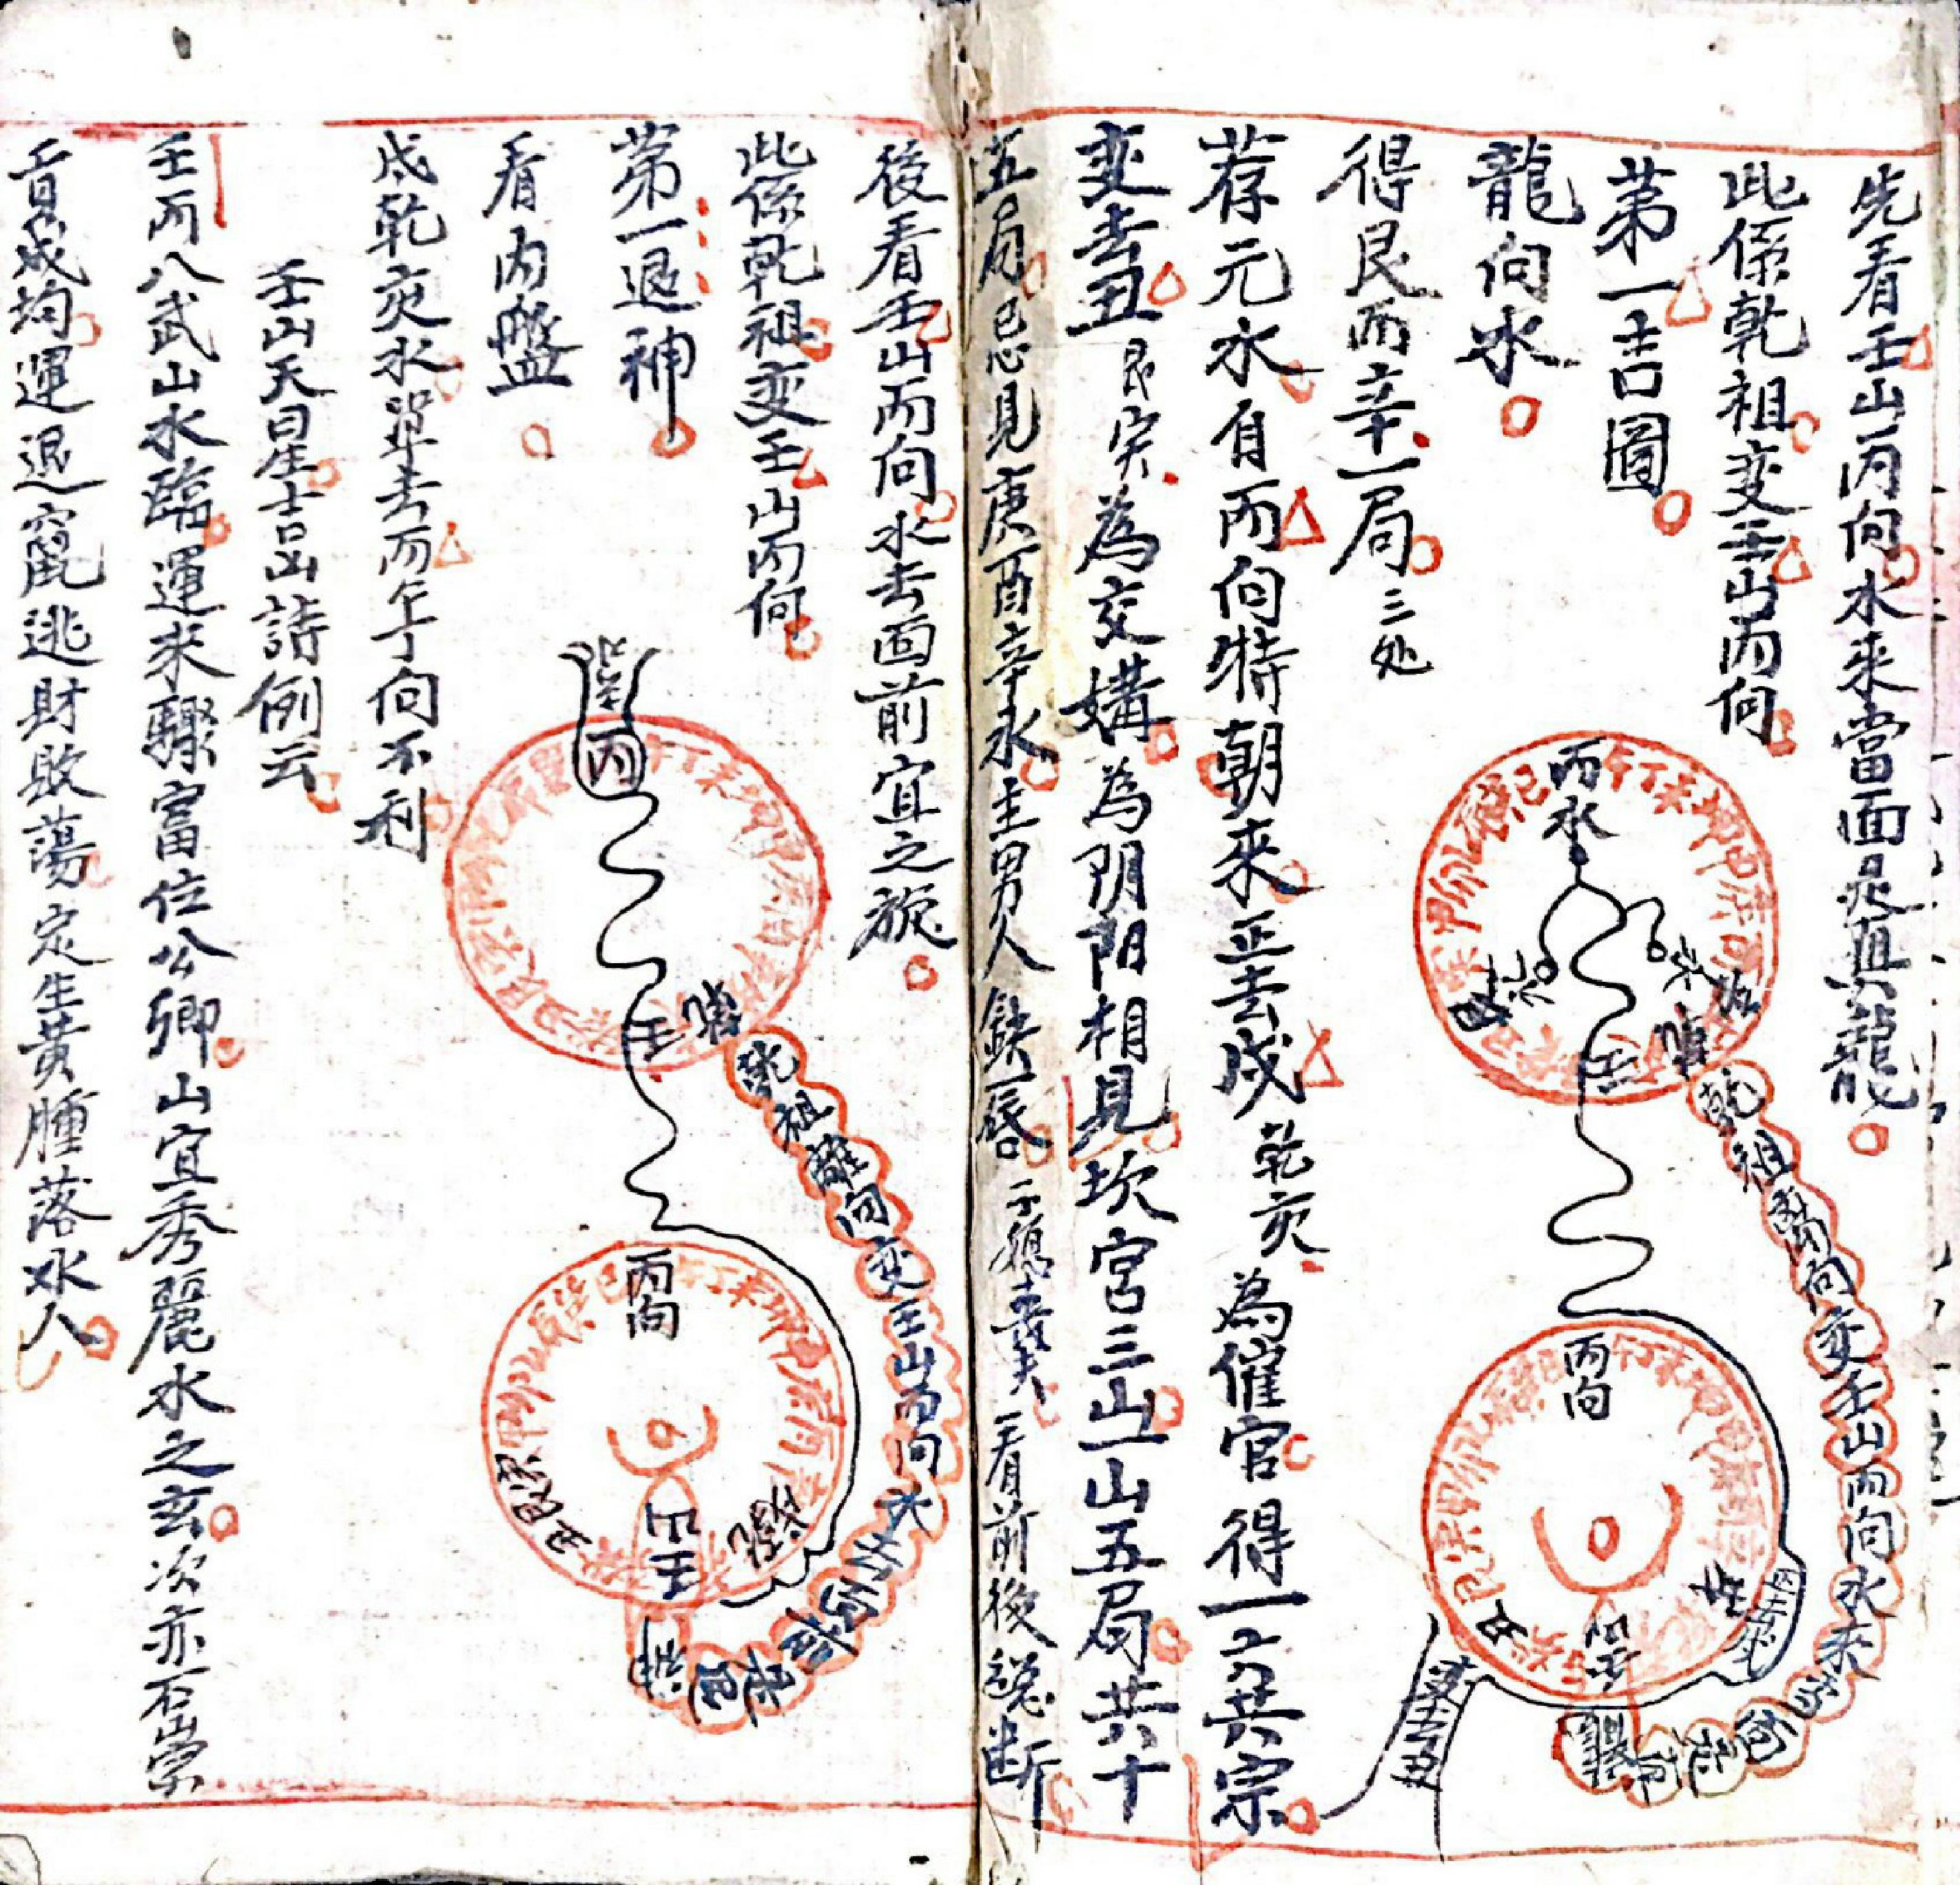 先看壬山丙向水來當面是真龍
此係乾祖变壬山丙向
苐一吉圖
龍向水
得艮丙辛一局三処
荐元水自丙向特朝來正去戌乾亥為催官得一六共宗
变去丑艮寅為交媾為阴阳相見坎宮三山一山五局共十
五局忌見庚酉辛水主男人缺唇一看前後總断
後看壬山丙向水去面前宜之玄
此係乾祖变壬山丙向
苐一退神
看内盤
戌乾亥水単去丙午丁向不利
壬山天星吉凶詩例云
壬丙八武山水臨運來驟富位公卿山宜秀麗水之玄次亦石崇
音成均運退竄逃財敗蕩定生黄腫落水人
丙水
壬
乾祖离向变壬山丙向水來
丙向
丑
丙
壬
乾祖離向变壬山丙向水去
丙向
丑艮寅
壬